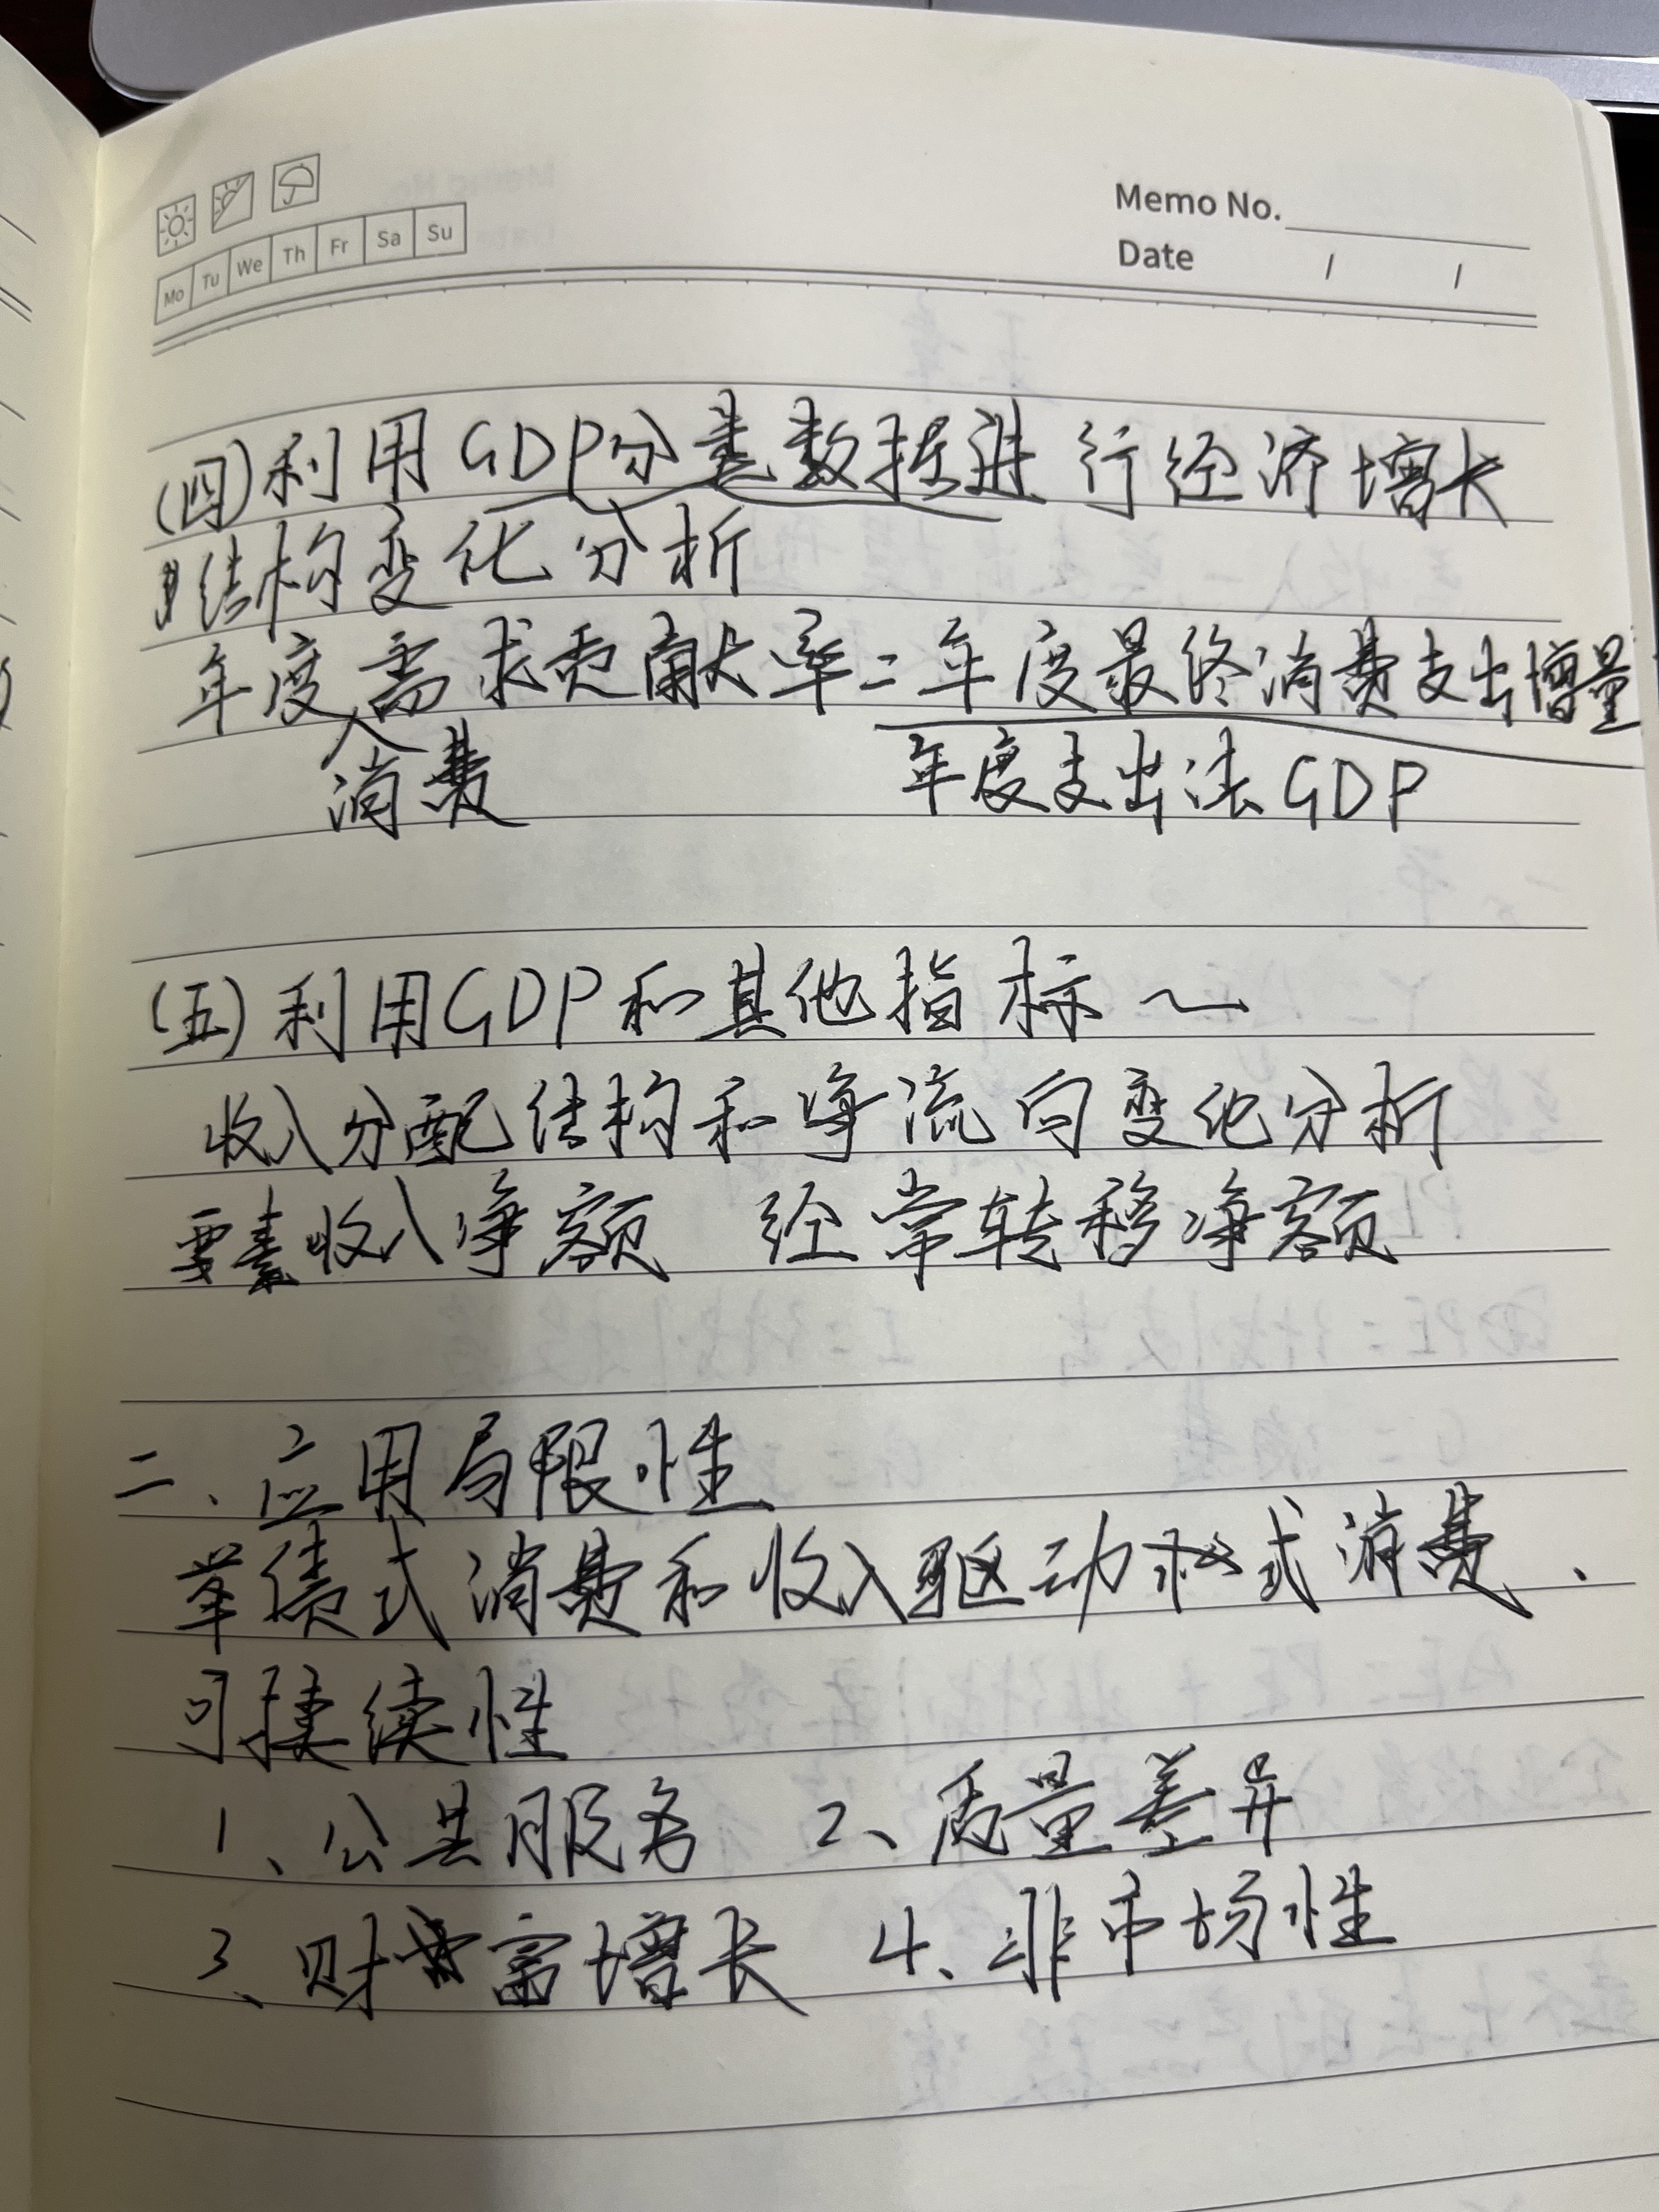 Memo No.
Mo Tu We Th Fr Sa Su
Date / /
(四)利用GDP分类数据进行经济增长
结构变化分析
年度需求贡献率=年度最终消费支出增量
消费 年度支出法GDP
(五)利用GDP和其他指标~
收入分配结构和净流向变化分析
要素收入净额 经常转移净额
二、应用局限性
举债式消费和收入驱动式消费、
可持续性
1、公共服务 2、质量差异
3、财富增长 4、非市场性